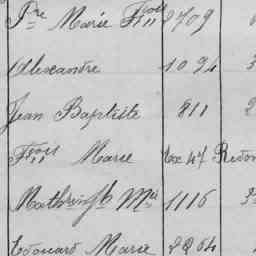 Pre Marie Fçois 2709
Alexandre 1094
Jean Baptiste 811
Fçois Marie Ex 47 Redon
Mathurin Mie 1116
Edouard Marie 2264